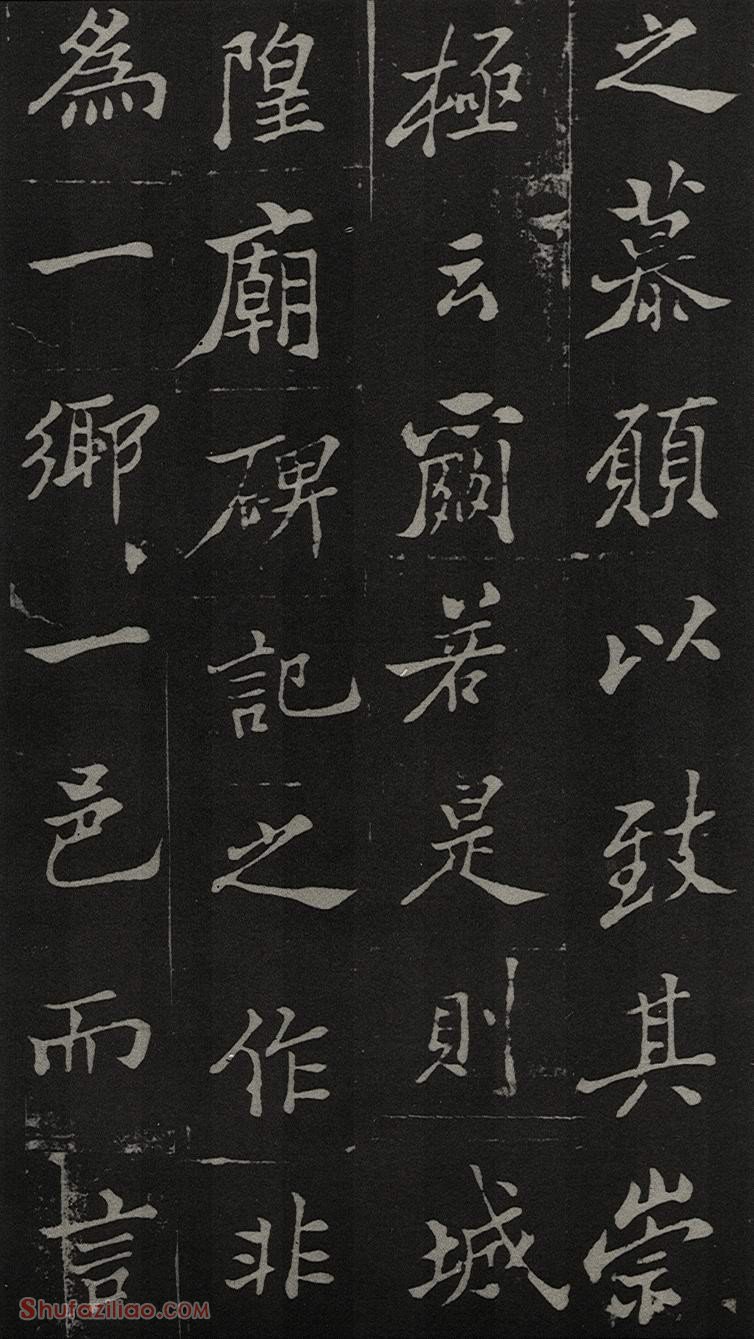 之慕以致其崇
極云爾若是則城
隍廟碑記之作非
爲一鄉一邑而言
Shufaziliao.com